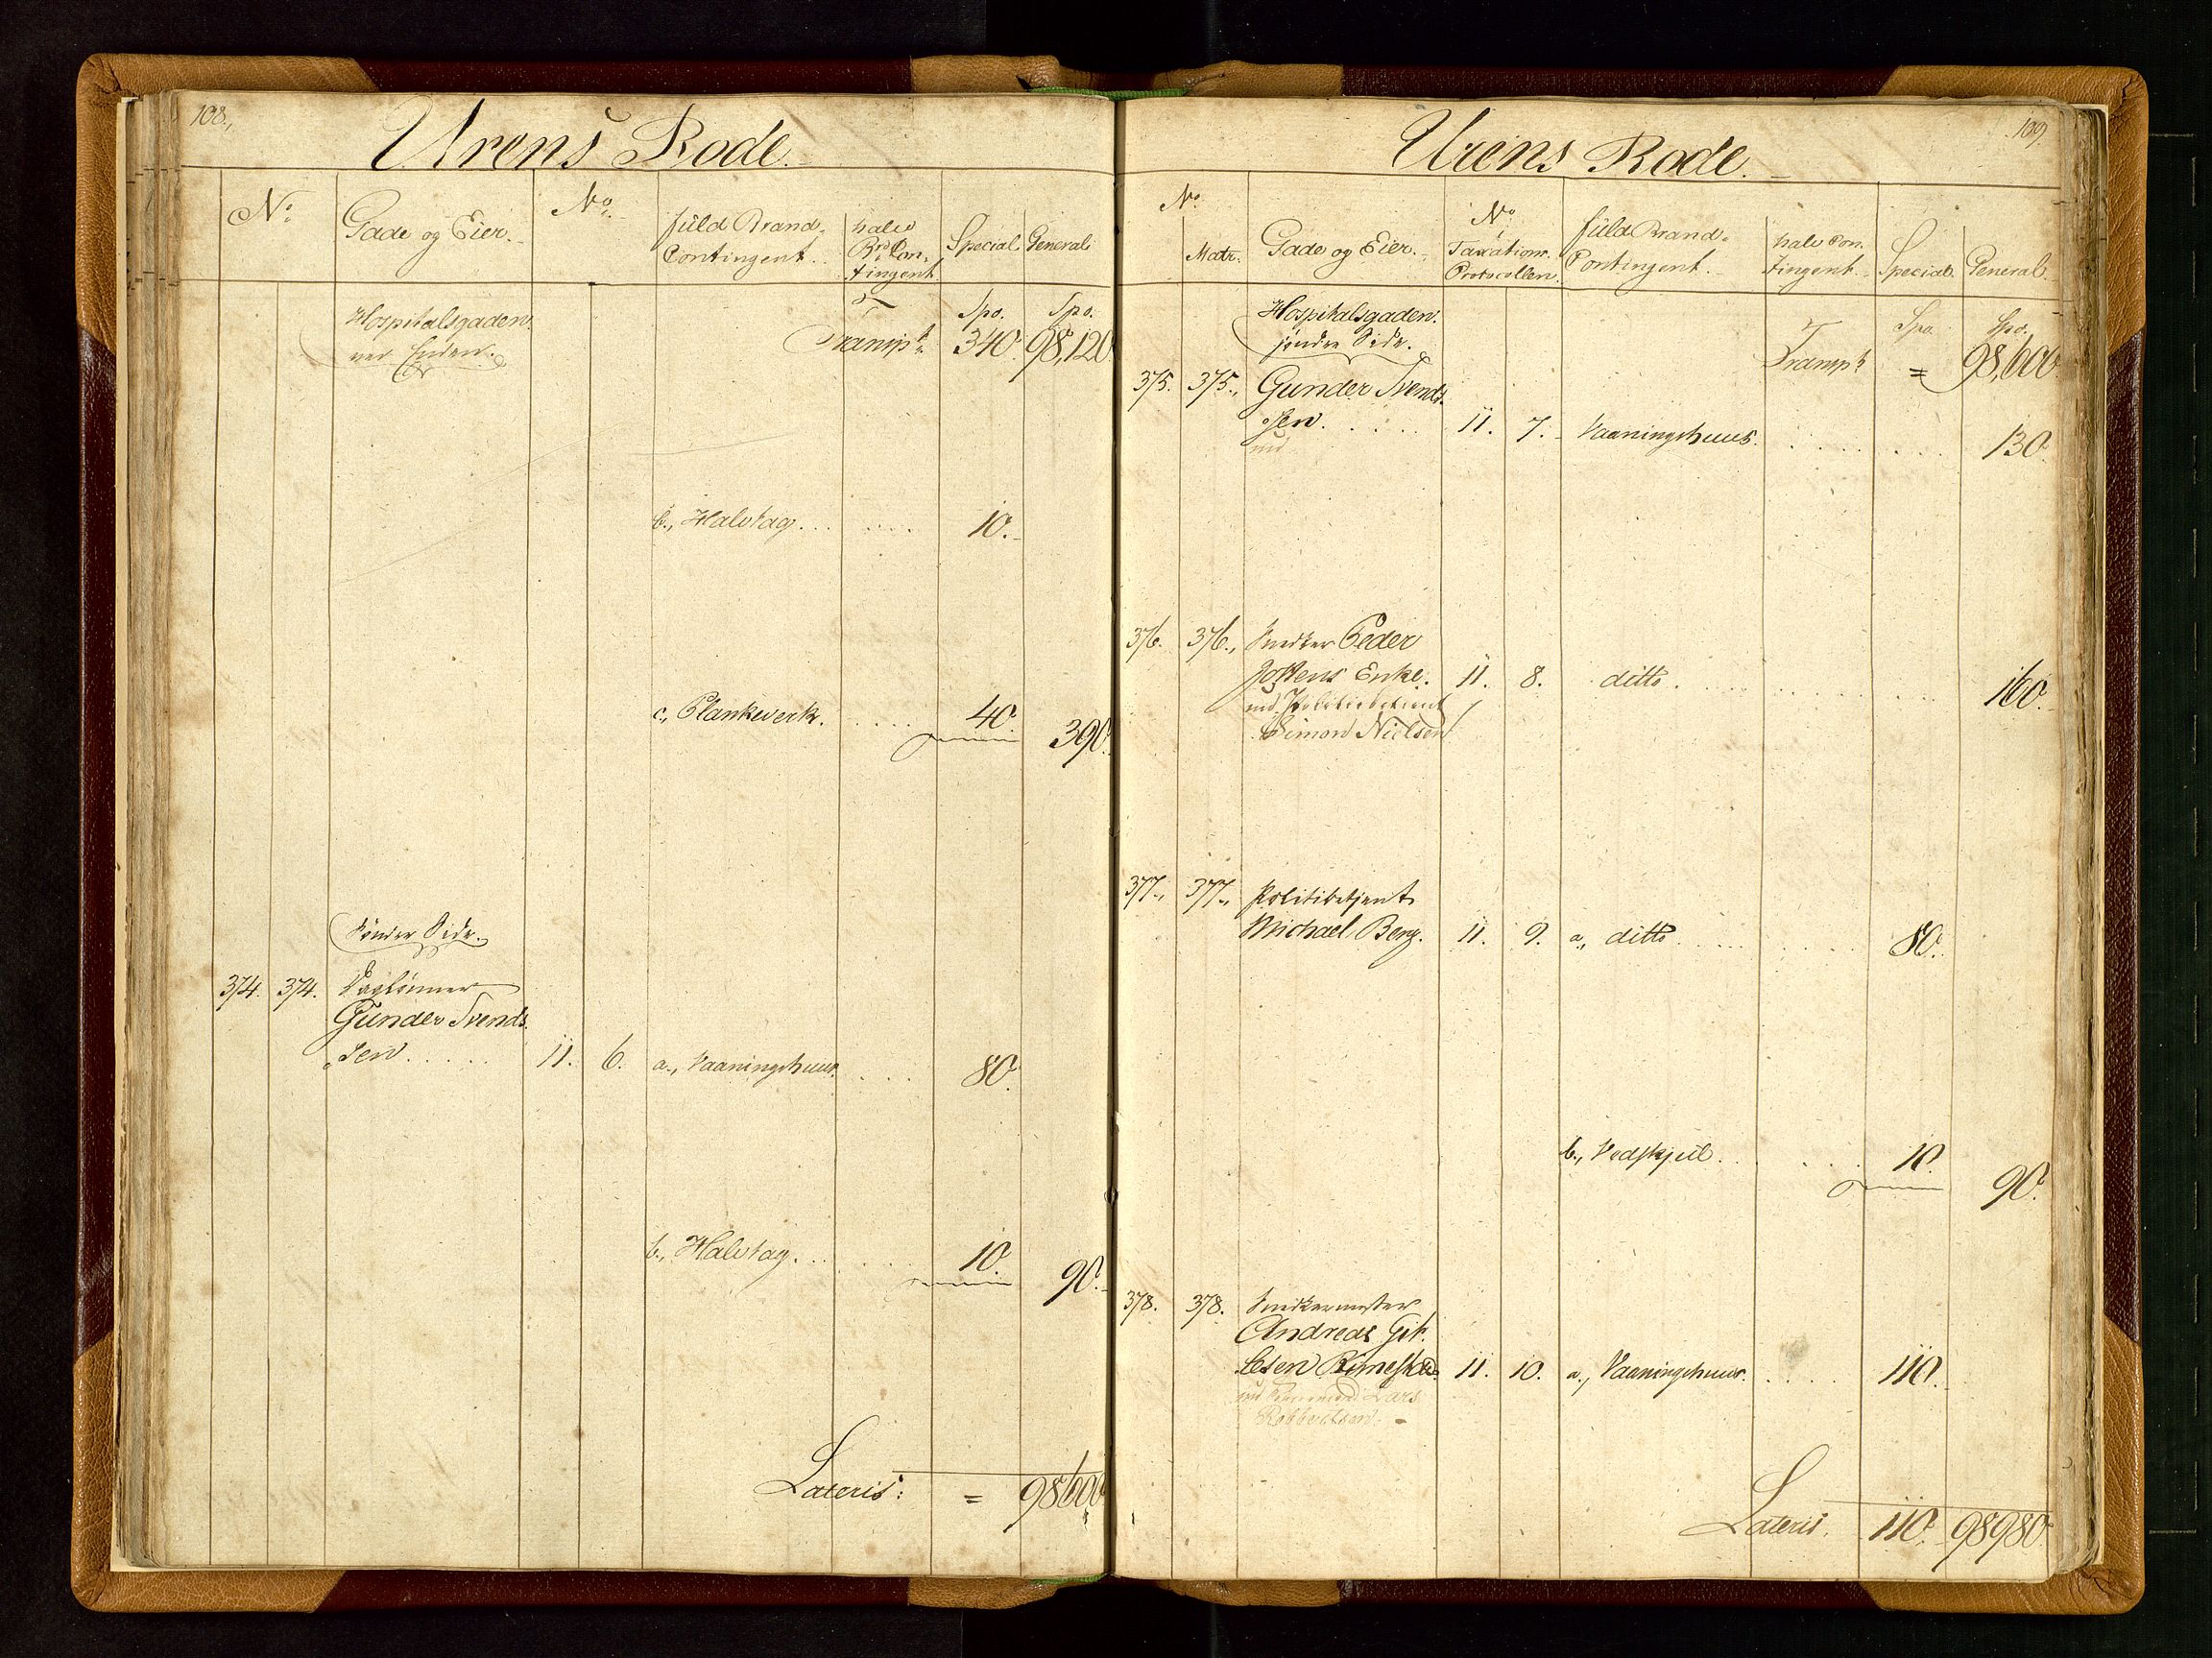 108.,
Urens Rode.
No.
Gade og Eier.
No.
fuld Brand-
Contingent.
halv
Brd Con-
tingent
Special
General
Hospitalsgaden
ved Enden.
Spd.
Spd.
Transpt
340.
98,120
b., Halvtag.
10.
c., Plankeverk.
40.
390.
Sönder Side.
374.
374.
Daglönner
Gunder Svend-
sen
11.
6.
a., Vaaningshuus.
80.
b., Halvtag.
10.
90.
Lateris:
=
98600
109.
Urens Rode.
No.
Matr.
Gade og Eier.
No.
Taxations-
Protocollen.
fuld Brand-
Contingent.
halv Con-
tingent.
Special
General
Hospitalsgaden.
söndre Side.
Spd.
Spd.
Transpt
=
98,600
375.
375.,
Gunder Svend-
sen.
nu
11.
7.
Vaaningshuus.
130.
376.
376.,
Snedker Peder
Jostens Enke.
11.
8.
ditto
160.
nu Politiebetient
Simon Nielsen
377.,
377.,
Politibetjent
Michael Berg.
11.
9.
a., ditto
80.
b., Vedskjul.
10.
90.
378.
378.
Snedkermester
Andreas Git-
lesen Rimestad
11.
10.
a., Vaaningshuus.
110.
nu Lars
Robbertsen.
Lateris.
110.
98980.